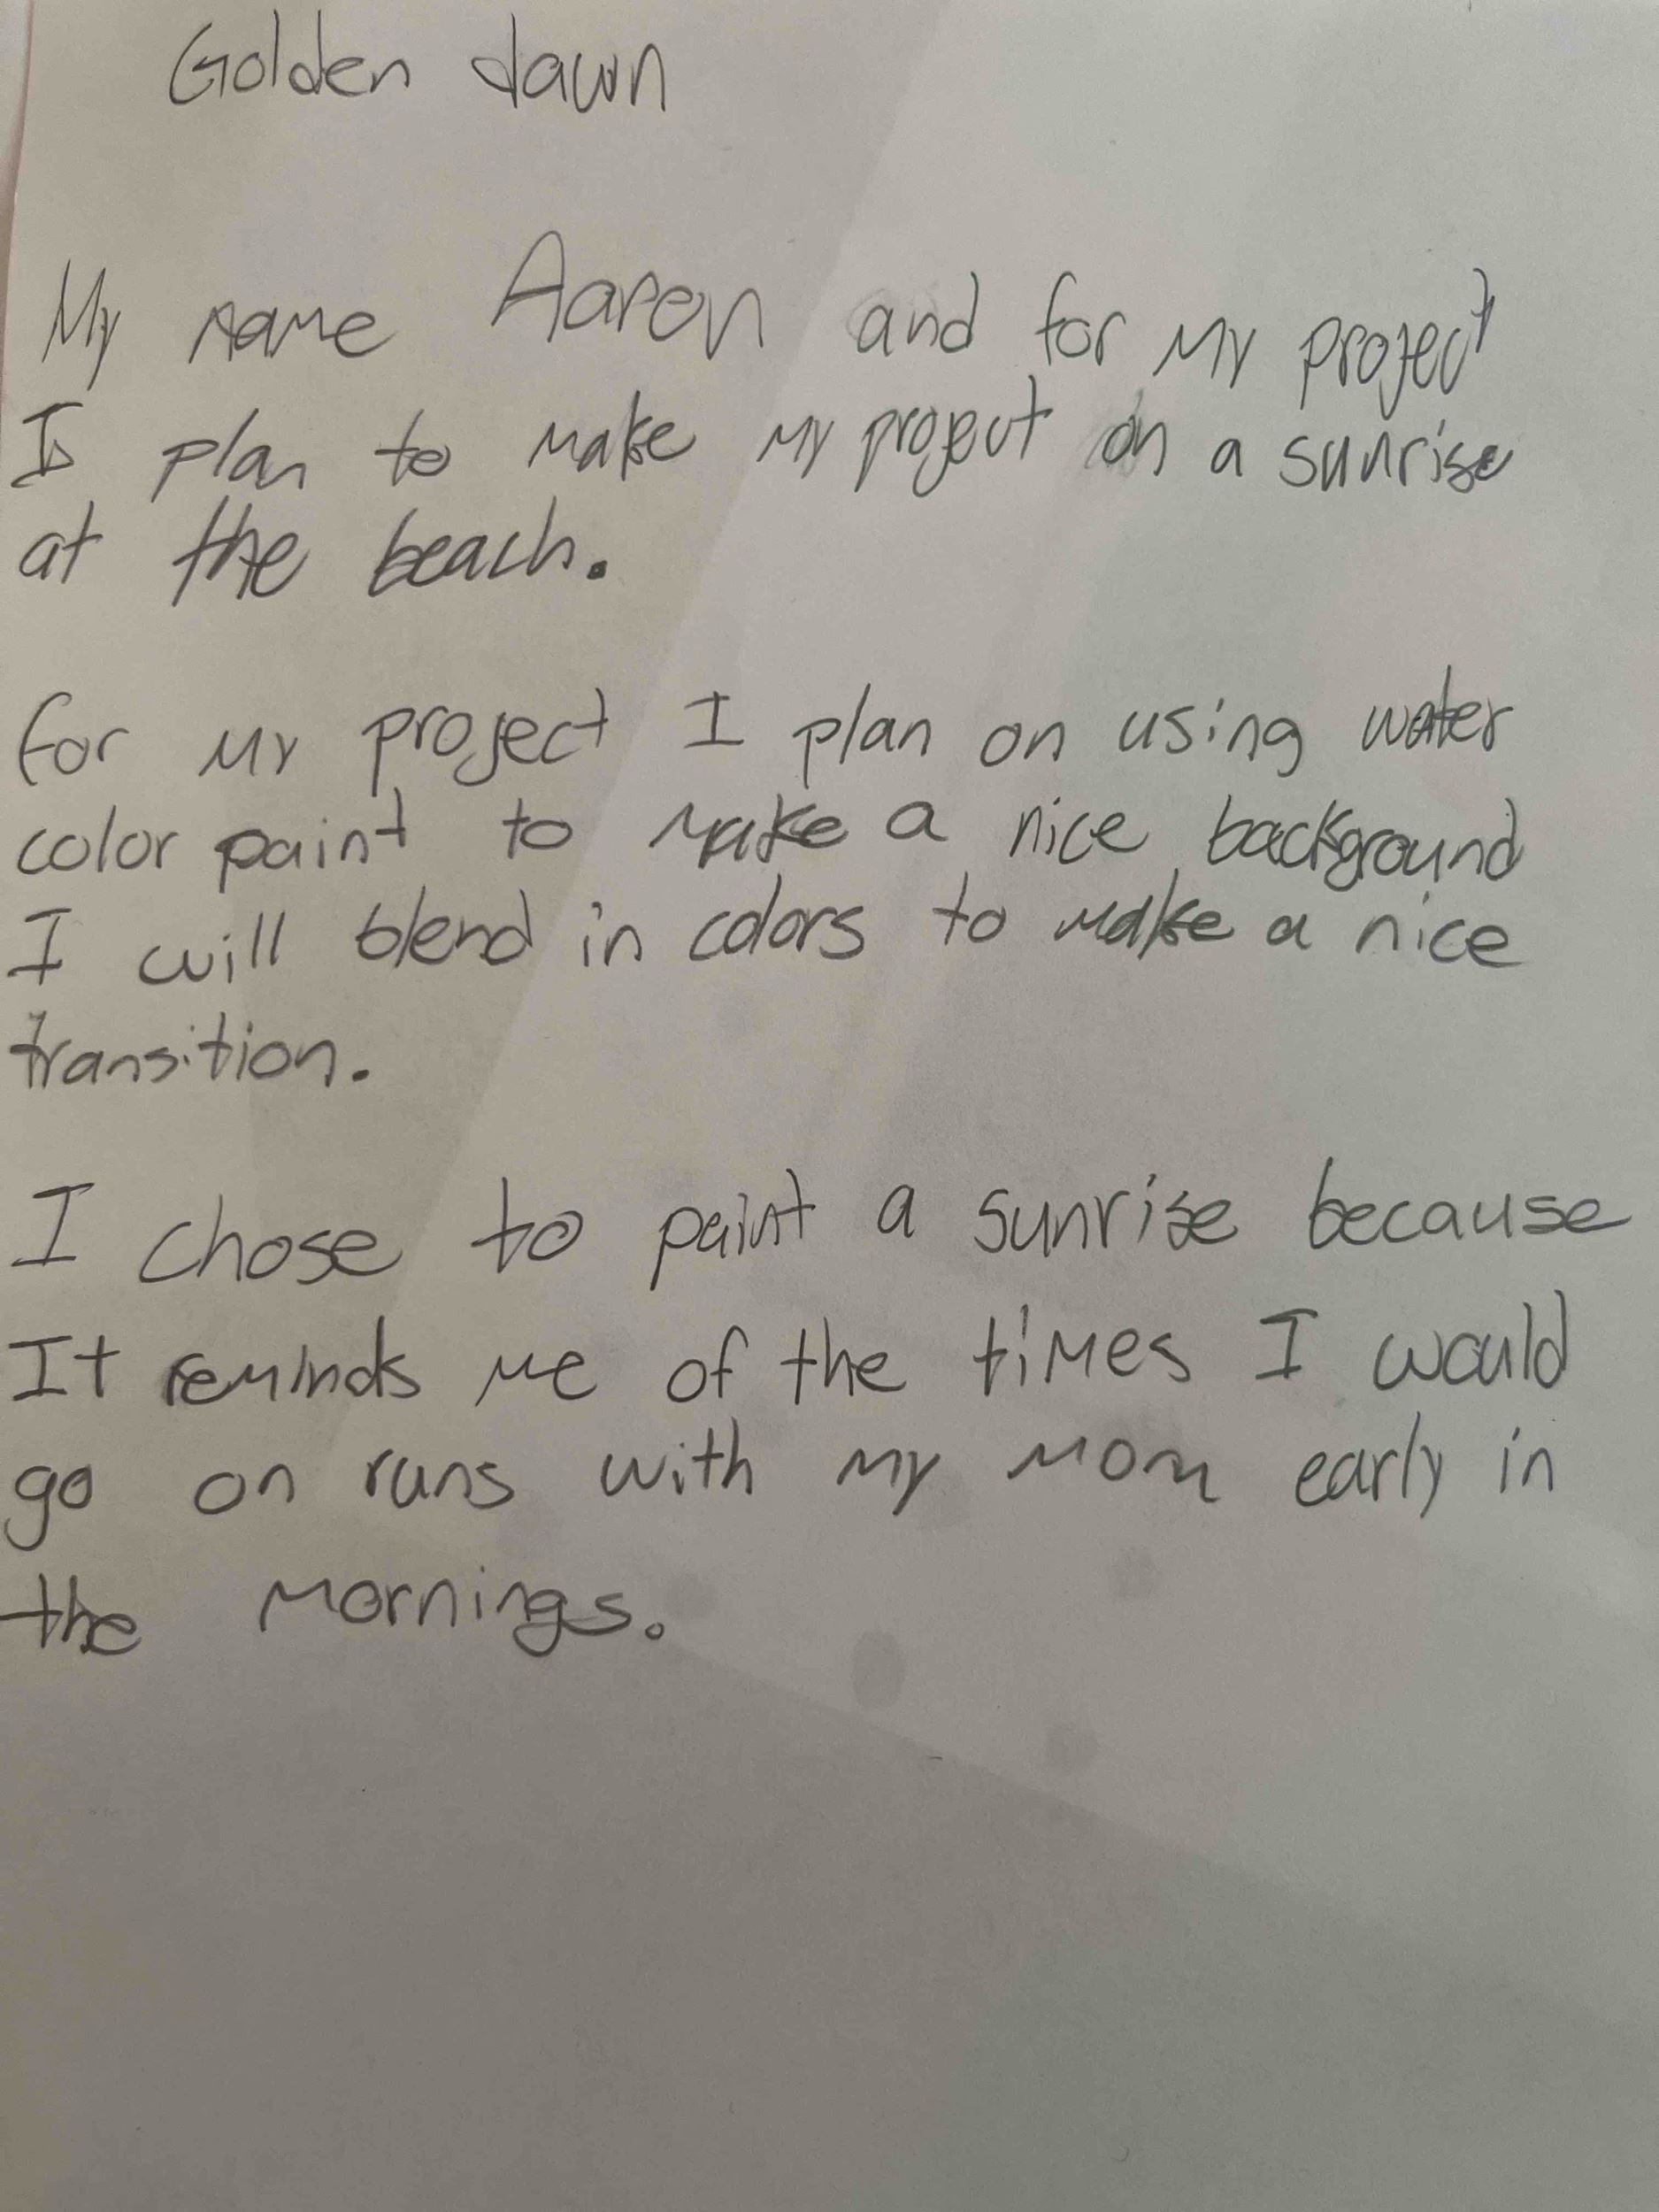 Golden dawn
My name Aaron and for my project
Is plan to make my project on a sunrise
at the beach.
for my project I plan on using water
color paint to make a nice background
I will blend in colors to make a nice
transition.
I chose to paint a sunrise because
It reminds me of the times I would
go on runs with my mom early in
the mornings.